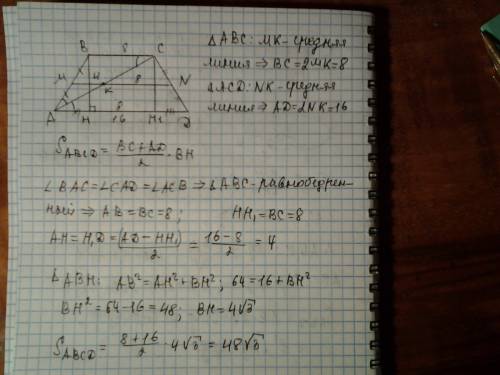 B 8 C
M 4 K 8 N
A H 8 H₁ D
16
ΔABC: MK - средняя
линия ⇒ BC=2MK=8
ΔACD: NK - средняя
линия ⇒ AD=2NK=16
S_ABCD = (BC+AD)/2 · BH
∠BAC=∠CAD=∠ACB ⇒ ΔABC - равнобедрен
ный ⇒ AB=BC=8; HH₁=BC=8
AH=H₁D=(AD-HH₁)/2 = (16-8)/2 = 4
ΔABH: AB²=AH²+BH²; 64=16+BH²
BH²=64-16=48; BH=4√3
S_ABCD = (8+16)/2 · 4√3 = 48√3